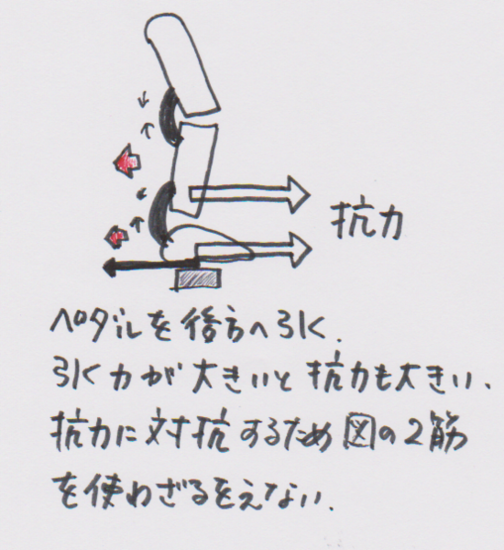 抗力
ペダルを後方へ引く.
引く力が大きいと抗力も大きい.
抗力に対抗するため図の2筋
を使わざるをえない.